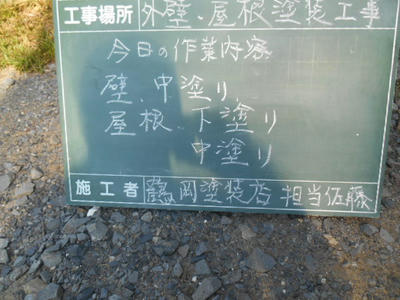 工事場所 外壁、屋根塗装工事
今日の作業内容
壁、中塗り
屋根、下塗り
中塗り
施工者 鶴岡塗装店 担当佐藤